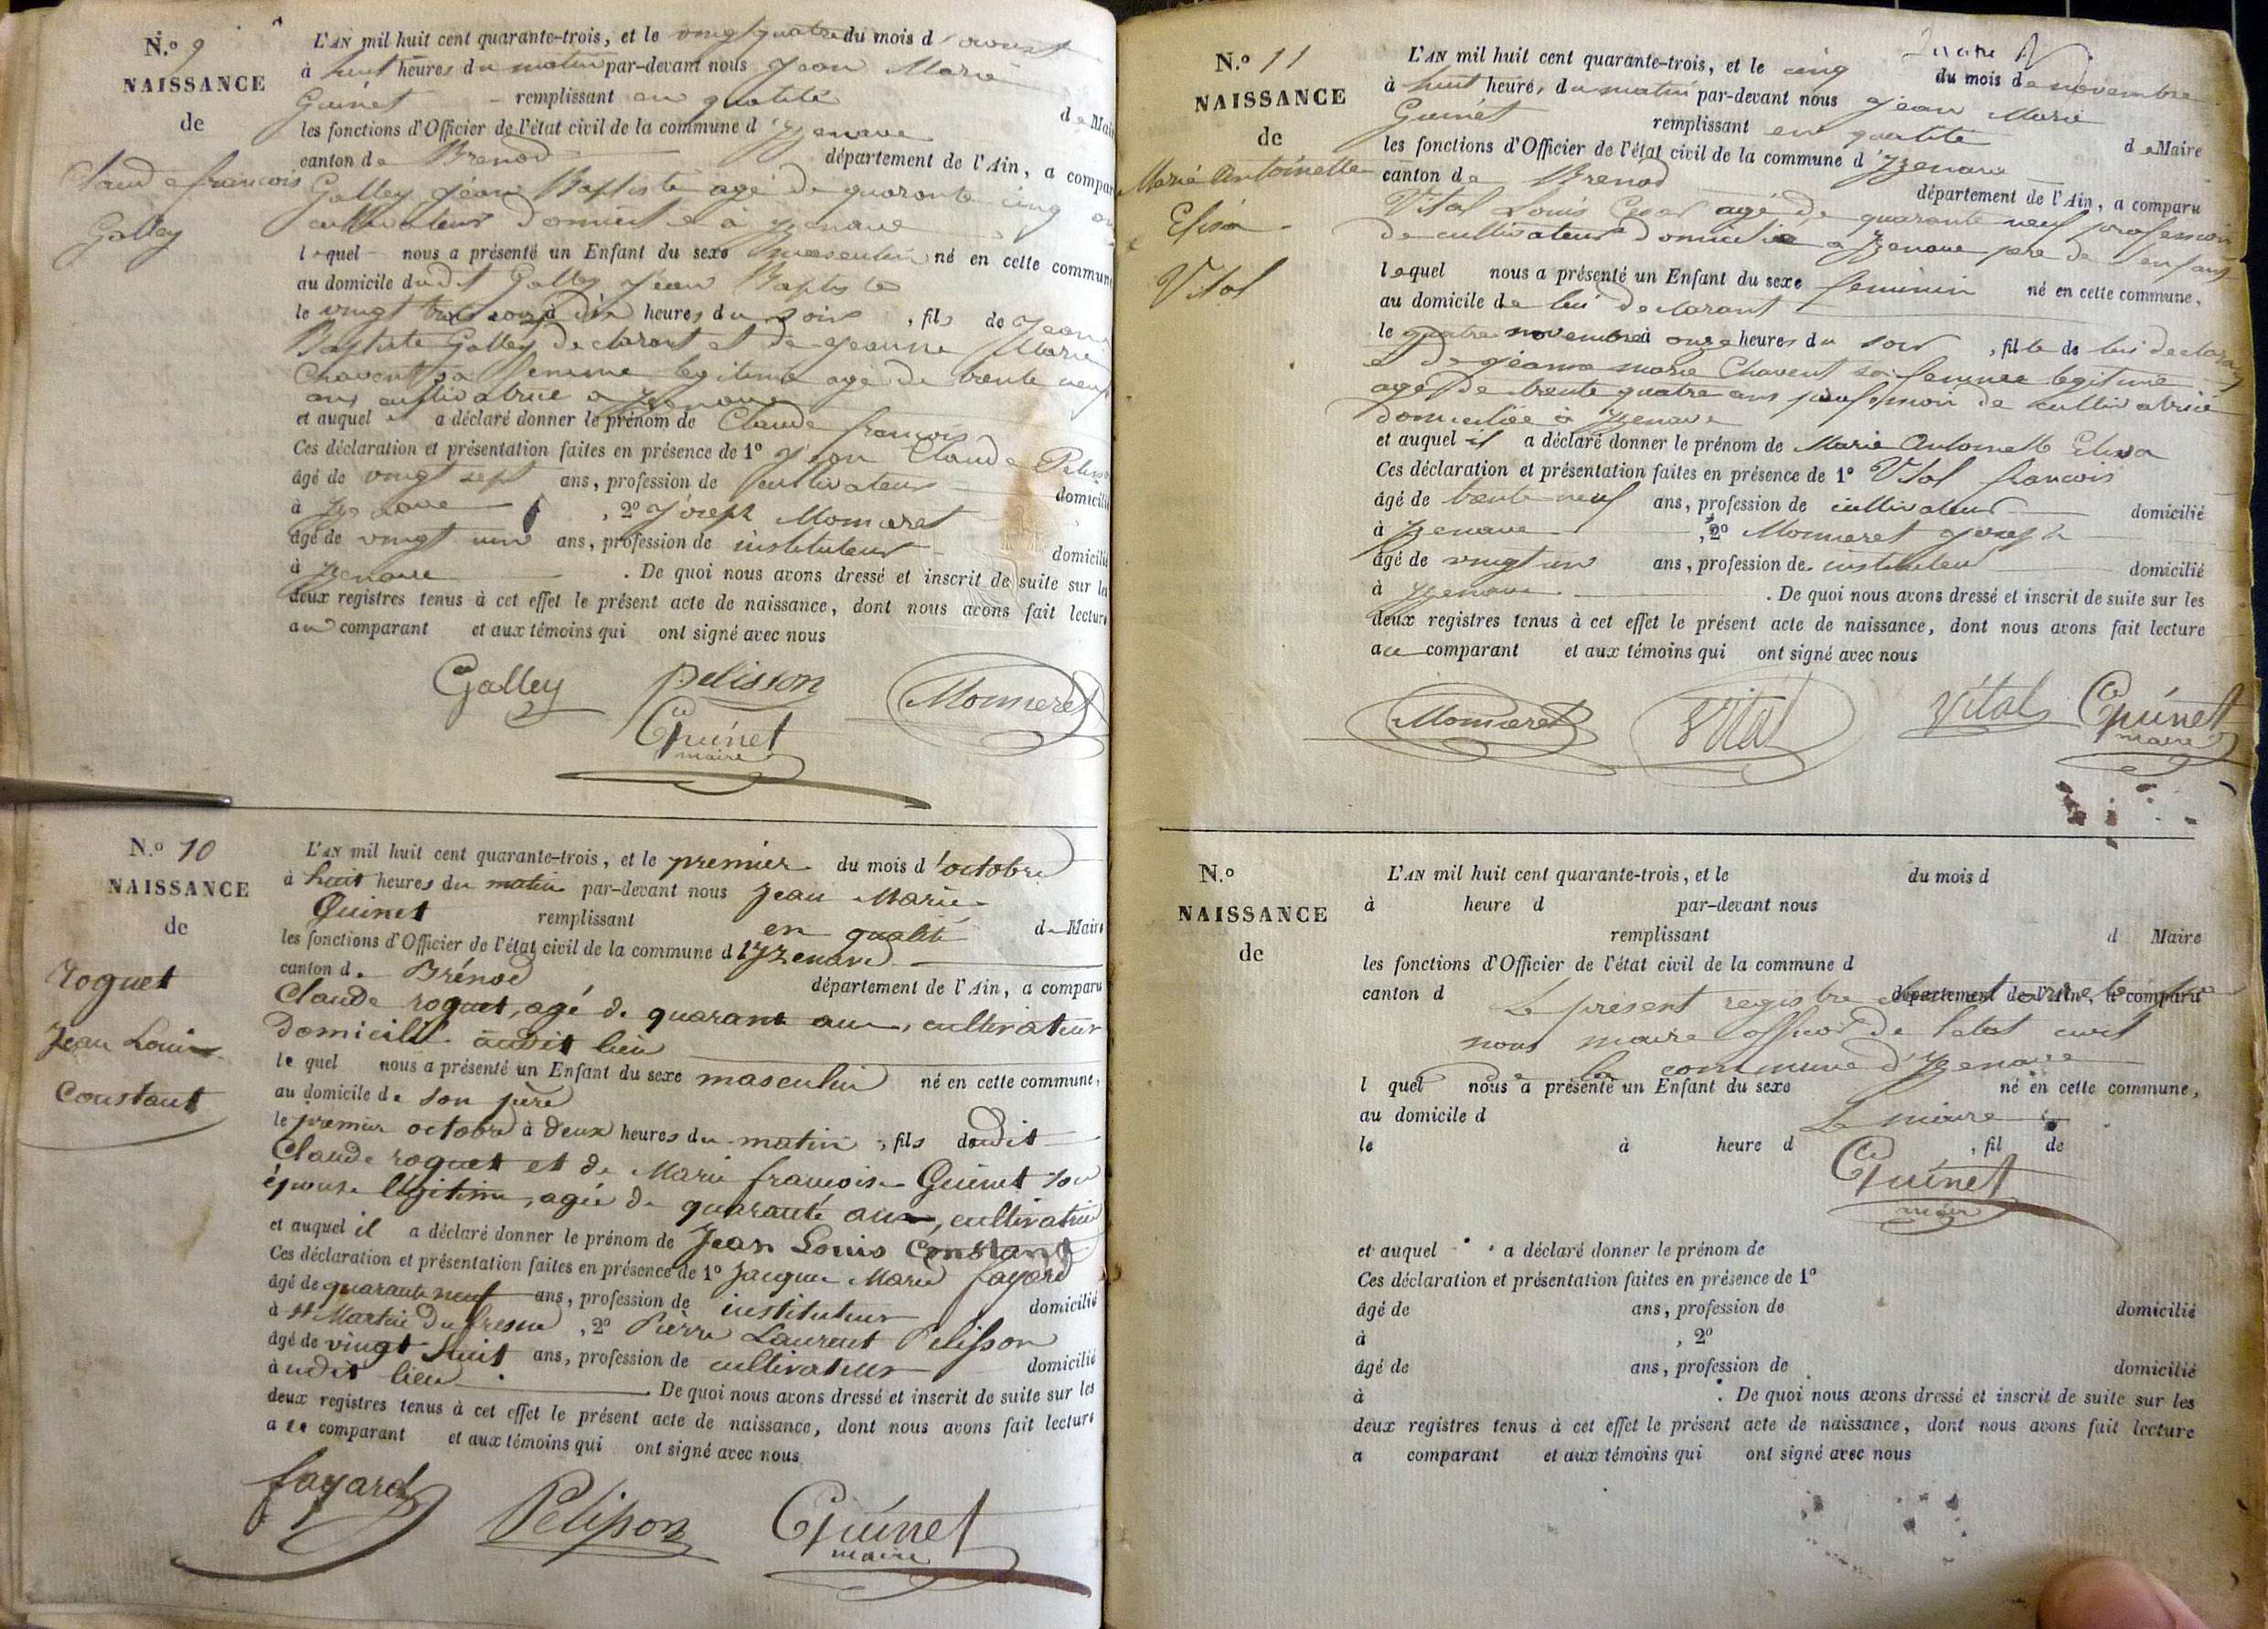 N.º 9
NAISSANCE
de
Claude francois
Galley
L'AN mil huit cent quarante-trois, et le vingt quatre du mois d'aoust
à huit heures du matin par-devant nous Jean Marie
Guinet remplissant en qualité de Maire
les fonctions d'Officier de l'état civil de la commune d'Izenave
canton de Brenod département de l'Ain, a compar
Galley Jean Baptiste agé de quarante cinq an
cultivateur domicilié à Izenave
lequel nous a présenté un Enfant du sexe masculin né en cette commun
au domicile dudit Galley Jean Baptiste
le vingt trois aoust à dix heures du soir, fils de Jean
Baptiste Galley declarant et de Jeanne Marie
Chavent sa femme legitime agé de trente neuf
ans cultivatrice a Izenave
et auquel il a déclaré donner le prénom de Claude francois
Ces déclaration et présentation faites en présence de 1º Jean Claude Pelisson
âgé de vingt sept ans, profession de cultivateur domicilié
à Izenave, 2º Joseph Monneret
âgé de vingt un ans, profession de instituteur domicilié
à Izenave. De quoi nous avons dressé et inscrit de suite sur les
deux registres tenus à cet effet le présent acte de naissance, dont nous avons fait lecture
au comparant et aux témoins qui ont signé avec nous
Galley pelisson Monneret
Guinet
maire
N.º 10
NAISSANCE
de
roguet
Jean Louis
Constant
L'AN mil huit cent quarante-trois, et le premier du mois d'octobre
à huit heures du matin par-devant nous Jean Marie
Guinet remplissant en qualité de Maire
les fonctions d'Officier de l'état civil de la commune d'Izenave
canton de Brénod département de l'Ain, a comparu
Claude roguet, agé de quarante ans, cultivateur
domicilié audit lieu
lequel nous a présenté un Enfant du sexe masculin né en cette commune,
au domicile de son père
le premier octobre à deux heures du matin, fils dudit
Claude roguet et de Marie francoise Guinet son
épouse légitime, agée de quarante ans, cultivatrice
et auquel il a déclaré donner le prénom de Jean Louis Constant
Ces déclaration et présentation faites en présence de 1º Jacque Marie fayard
âgé de quarante neuf ans, profession de instituteur domicilié
à St Martin du fresne, 2º Pierre Laurent Pelisson
âgé de vingt huit ans, profession de cultivateur domicilié
audit lieu. De quoi nous avons dressé et inscrit de suite sur les
deux registres tenus à cet effet le présent acte de naissance, dont nous avons fait lecture
a le comparant et aux témoins qui ont signé avec nous
fayard Pelisson Guinet
maire
N.º 11
NAISSANCE
de
Marie Antoinette
Elisa
Vital
L'AN mil huit cent quarante-trois, et le cinq du mois de novembre
à huit heure, du matin par-devant nous Jean Marie
Guinet remplissant en qualité de Maire
les fonctions d'Officier de l'état civil de la commune d'Izenave
canton de Brenod département de l'Ain, a comparu
Vital Louis agé de quarante neuf profession
de cultivateur domicilié a Izenave pere de l'enfant
lequel nous a présenté un Enfant du sexe feminin né en cette commune,
au domicile de lui declarant
le quatre novembre à onze heures du soir, fille de lui declarant
et de jeanne marie Chavent sa femme legitime
agé de trente quatre ans profession de cultivatrice
domiciliée à Izenave
et auquel il a déclaré donner le prénom de Marie Antoinette Elisa
Ces déclaration et présentation faites en présence de 1º Vital francois
âgé de trente neuf ans, profession de cultivateur domicilié
à Izenave, 2º Monneret Joseph
âgé de vingt un ans, profession de instituteur domicilié
à Izenave. De quoi nous avons dressé et inscrit de suite sur les
deux registres tenus à cet effet le présent acte de naissance, dont nous avons fait lecture
au comparant et aux témoins qui ont signé avec nous
Monneret Vital Vital Guinet
maire
N.º
NAISSANCE
de
L'AN mil huit cent quarante-trois, et le du mois d
à heure d par-devant nous
remplissant d Maire
les fonctions d'Officier de l'état civil de la commune d
canton d département de l'Ain, a comparu
Le présent registre
nous maire officier de l'etat civil
de la commune d'Izenave
l quel nous a présenté un Enfant du sexe né en cette commune,
au domicile d
Le maire
le à heure d , fil de
Guinet
maire
et auquel a déclaré donner le prénom de
Ces déclaration et présentation faites en présence de 1º
âgé de ans, profession de domicilié
à , 2º
âgé de ans, profession de domicilié
à . De quoi nous avons dressé et inscrit de suite sur les
deux registres tenus à cet effet le présent acte de naissance, dont nous avons fait lecture
a comparant et aux témoins qui ont signé avec nous